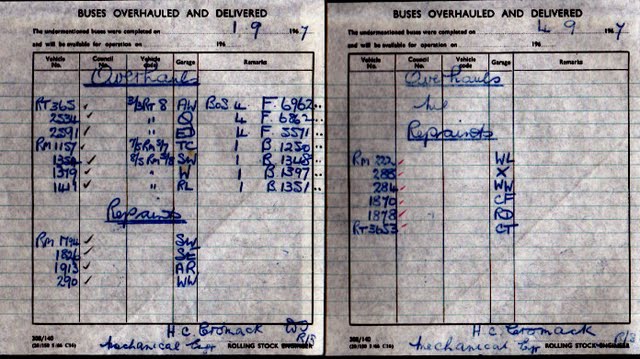 BUSES OVERHAULED AND DELIVERED
The undermentioned buses were completed on 1 9 1967
and will be available for operation on 196
Vehicle No. Council No. Vehicle code Garage Remarks
Overhauls
RT 365 ✓ 3/3RT 8 AW BoS 4 F. 6962
2534 ✓ " Q 4 F. 6362
2591 ✓ " 4 F 5571
RM 1157 ✓ 7/5 RM 3/7 TC 1 B 1250
1350 ✓ 8/5 RM 3/8 SW 1 B 1348
1379 ✓ " W 1 B 1397
1441 ✓ " RL 1 B 1351
Repaints
RM 1794 ✓ SW
1826 ✓ SE
1913 ✓ AR
290 ✓ WW
H. C. Cromack
Mechanical Engr ROLLING STOCK ENGINEER
BUSES OVERHAULED AND DELIVERED
The undermentioned buses were completed on 4 9 1967
and will be available for operation on 196
Vehicle No. Council No. Vehicle code Garage Remarks
Overhauls
Repaints
RM 222 ✓ WL
288 ✓ X
284 ✓ WW
1870 ✓ CF
1878 ✓
RT 3653 ✓ CT
H. C. Cromack
Mechanical Engr ROLLING STOCK ENGINEER